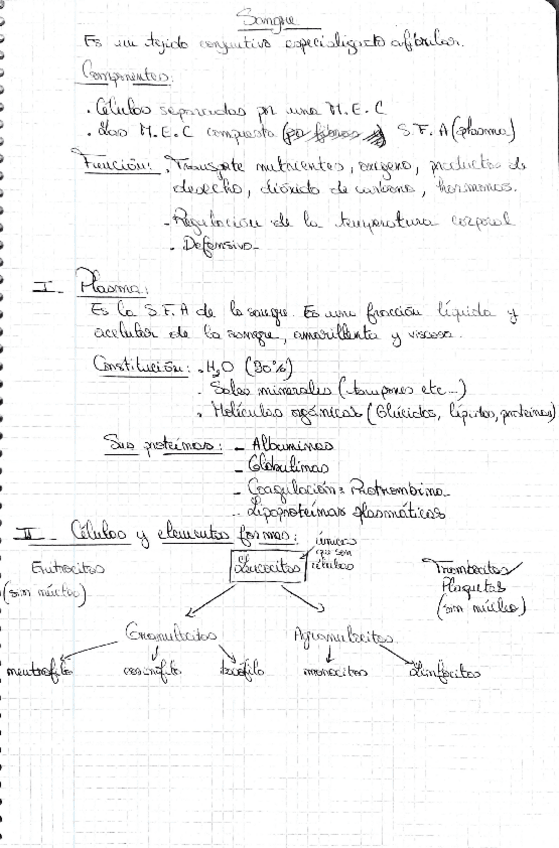 Sangre
Es un tejido conjuntivo especializado afibrilar.
Componentes:
. Células separadas por una M.E.C
. Las M.E.C compuesta (por fibras y) S.F.A (plasma)
Función: . Transporte nutrientes, oxígeno, productos de
desecho, dióxido de carbono, hormonas.
- Regulación de la temperatura corporal
- Defensiva-
I- Plasma:
Es la S.F.A de la sangre. Es una fracción líquida y
acelular de la sangre, amarillenta y viscosa.
Constitución: . H2O (90%)
. Sales minerales (tampones etc...)
. Moléculas orgánicas (Glúcidos, lípidos, proteínas)
Sus proteínas: - Albuminas
- Globulinas
- Coagulación: Protrombina
- Lipoproteínas plasmáticas
II- Células y elementos formes:
únicos
que son
células
Eritrocitos
(sin núcleo)
Leucocitos
Trombocitos/
Plaquetas
(sin núcleo)
Granulocitos
Agranulocitos
neutrofilo
eosinófilo
basófilo
monocitos
Linfocitos